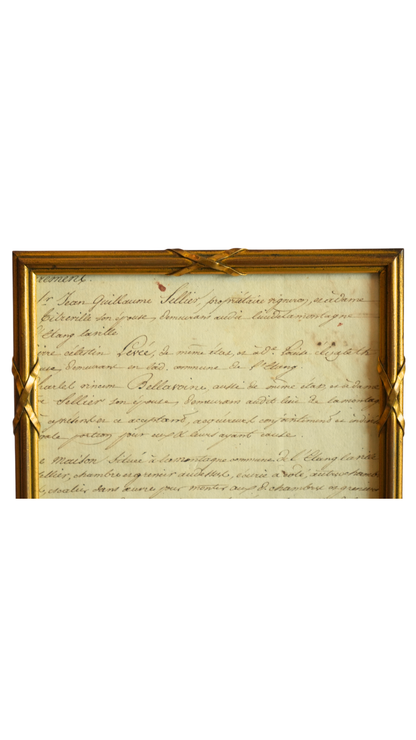 ement.
Sr. Jean Guillaume Sellier, propriétaire vigneron, et à dame
son épouse, demeurant audit lieu de la montagne
l'Etang la ville
célestin Percé, de même état, et à De.
demeurant en lad. commune de l'Etang
vincent Bellavoine aussi de même état, et à dame
Sellier son épouse, demeurans audit lieu de la montag
ce acceptans, acquéreurs conjointement et
portion pour eux & leurs ayant cause.
e Maison située à la montagne commune de l'Etang la ville
ellier, chambre et grenier au dessus, écurie à côté, autre cham
escalier dans œuvre pour monter aux d. chambres et greniers